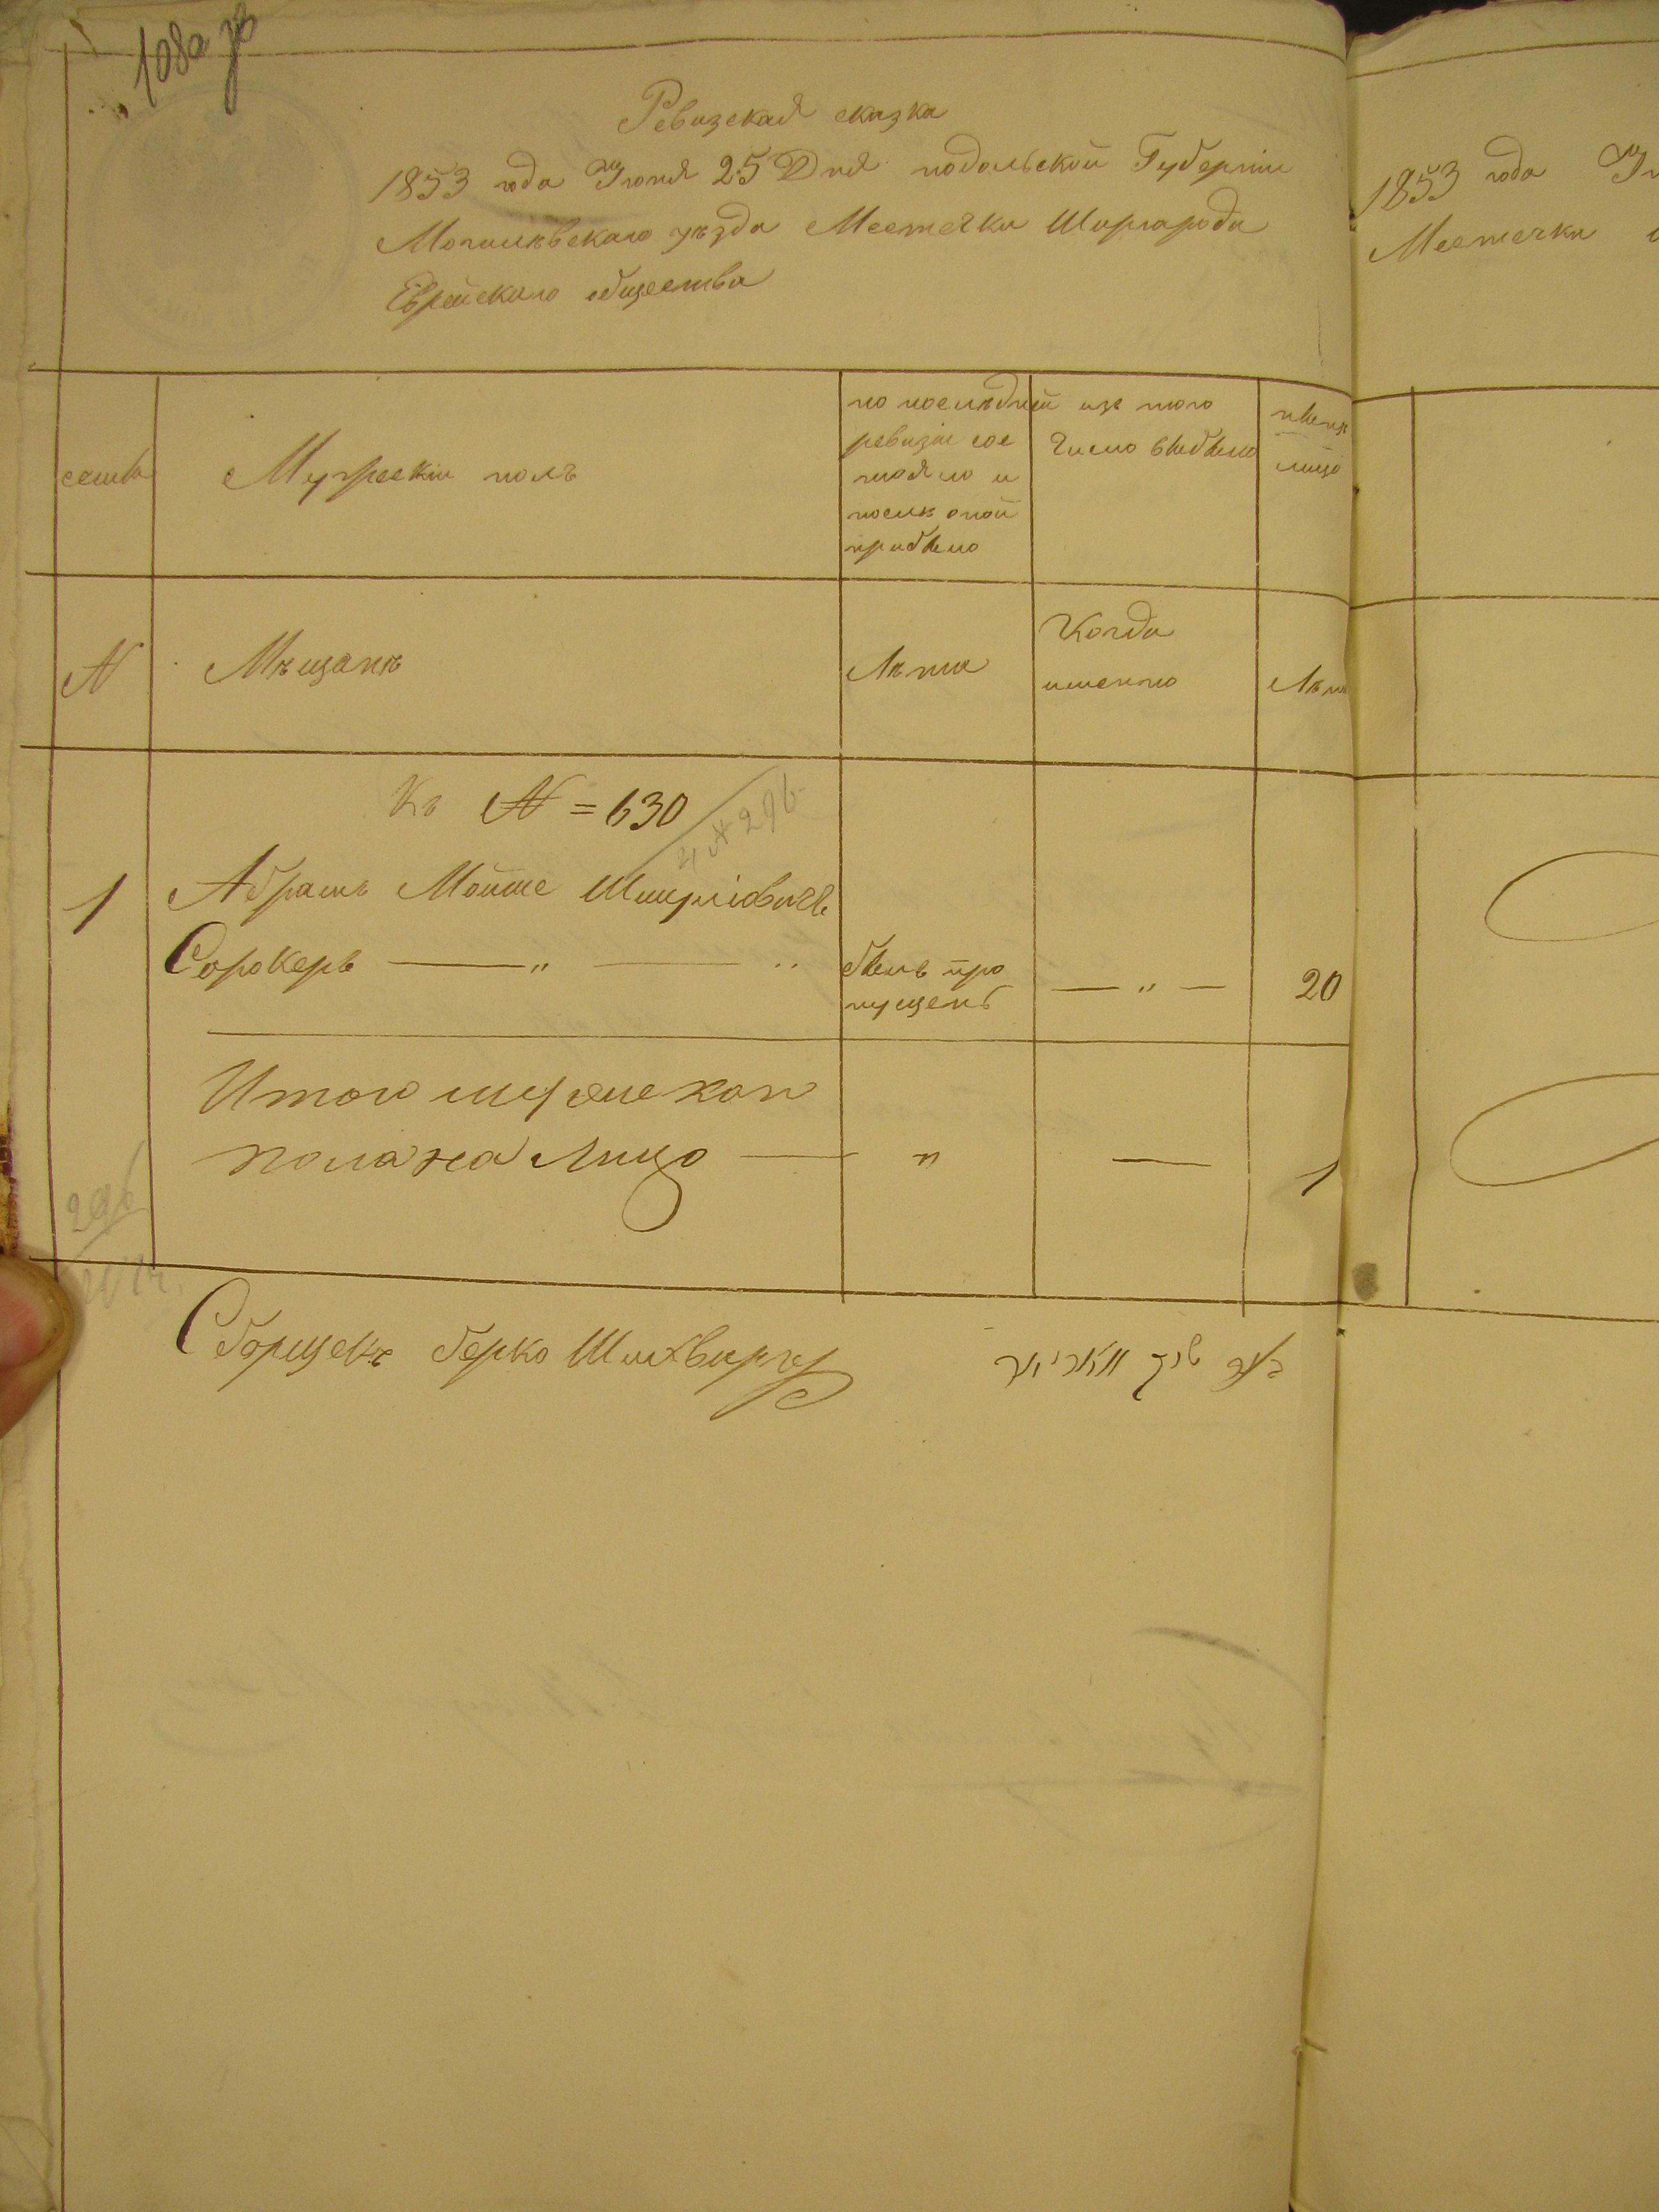 108а зв
Ревизская сказка
1853 года Июня 25 Дня подольской Губернии
Могилѣвскаго уѣзда Местечки Шаргарода
Еврейскаго общества
семьи
Мужескіи полъ
по послѣдней
ревизіи сос
тояло и
послѣ оной
прибыло
изъ того
число выбыло
нынѣ
лицо
N
Мѣщанѣ
Лѣта
Когда
именно
Лѣта
Къ N = 630
N 296
1
Абрамъ Мойше Шмулiовичъ
Сорокеръ — „ —
былъ про
пущенъ
— „ —
20
Итого мужеска
пола на Лицо —
„
—
1
296
Сборщекъ берко Шихвиргер
1853 года
Местечки